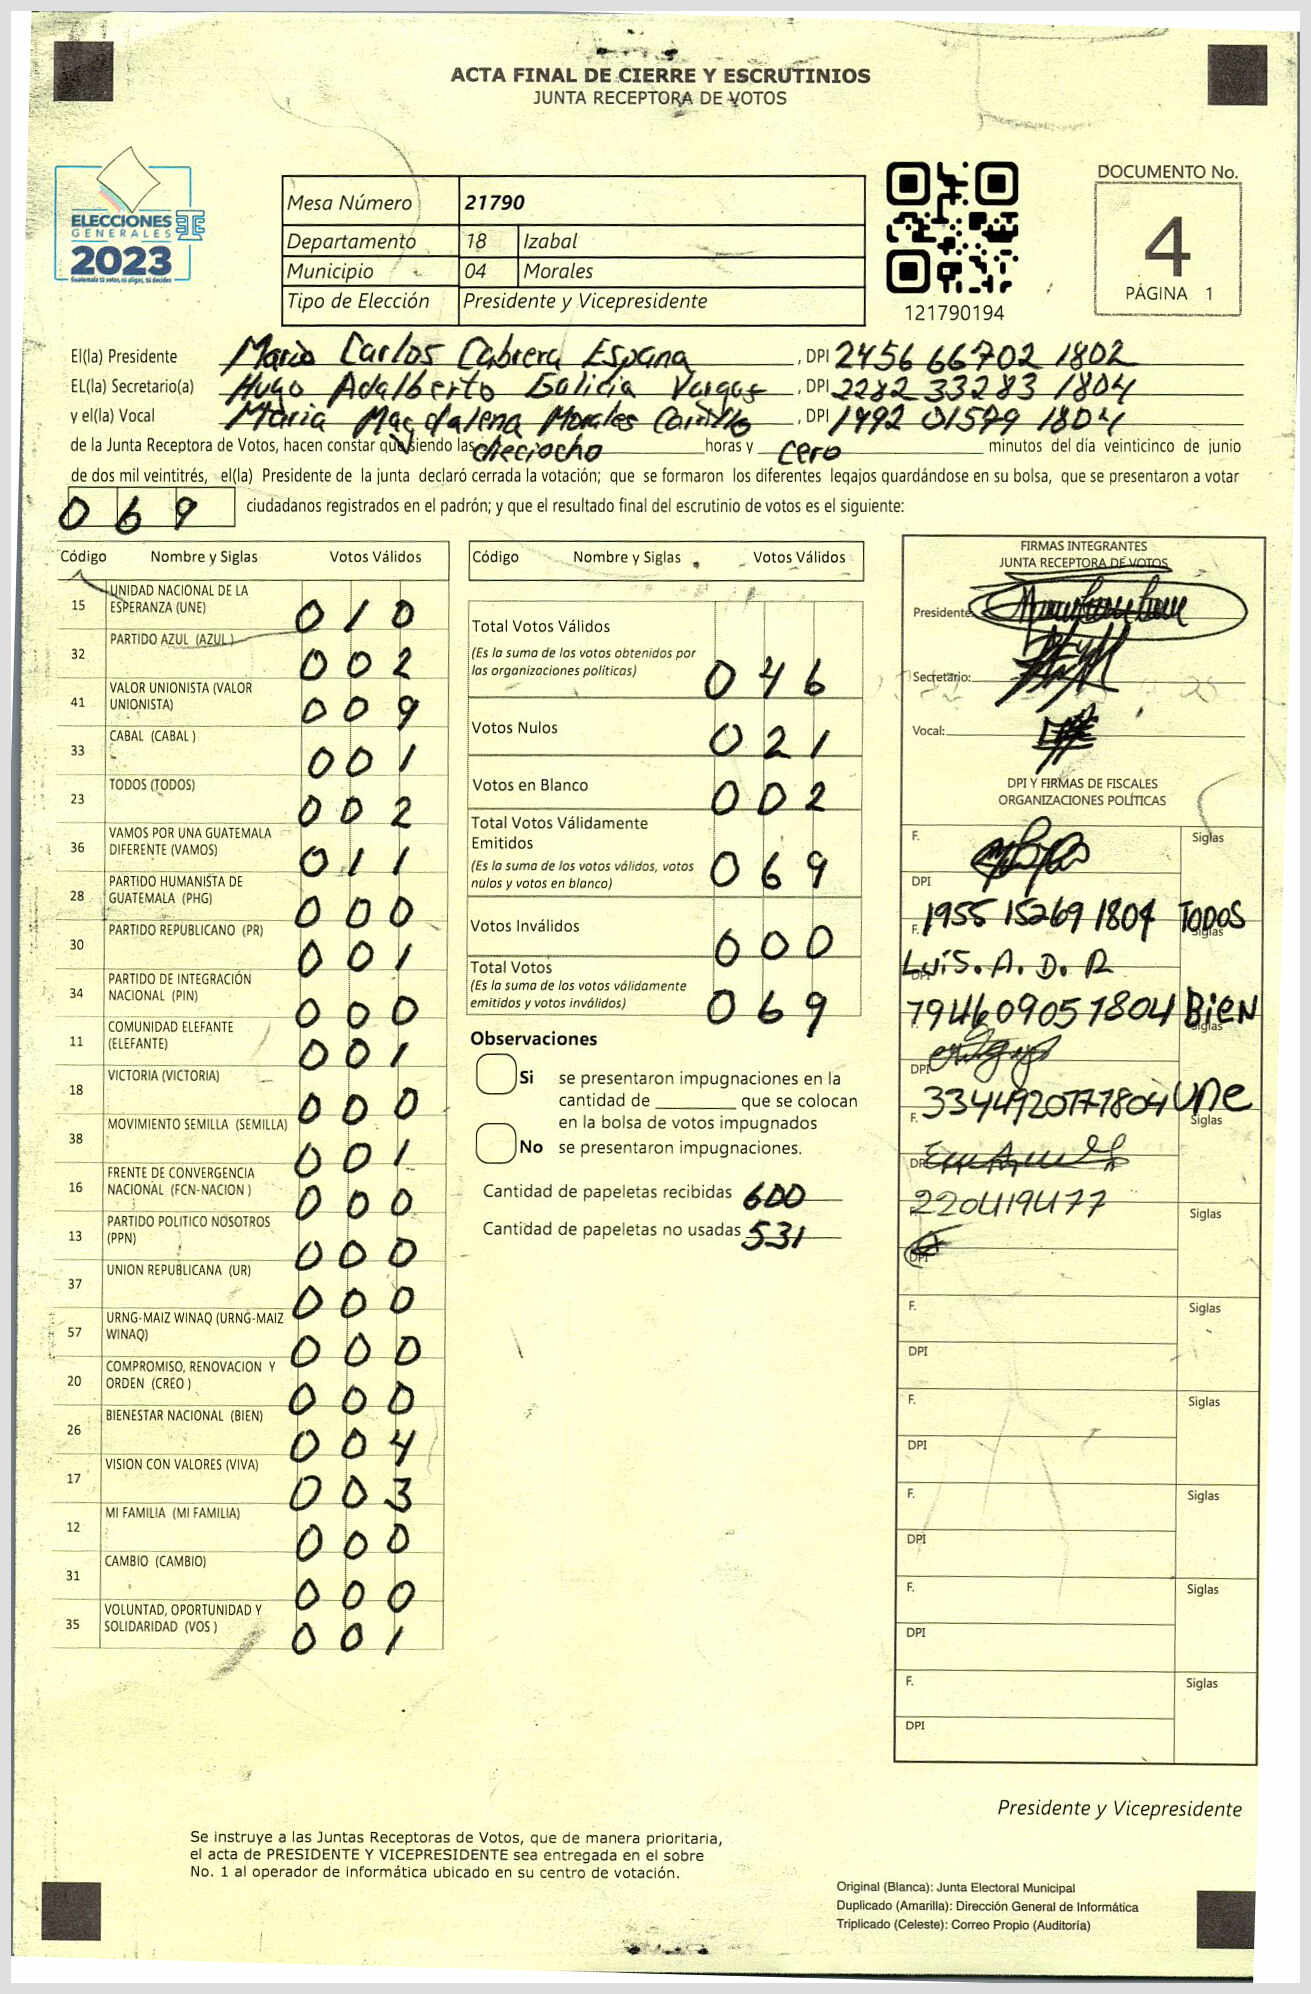 ACTA FINAL DE CIERRE Y ESCRUTINIOS
JUNTA RECEPTORA DE VOTOS
ELECCIONES
GENERALES
2023
Guatemala tú votas, tú eliges, tú decides
Mesa Número 21790
Departamento 18 Izabal
Municipio 04 Morales
Tipo de Elección Presidente y Vicepresidente
121790194
DOCUMENTO No.
4
PÁGINA 1
El(la) Presidente Mario Carlos Cabrera Espana, DPI 2456 66702 1802
EL(la) Secretario(a) Hugo Adalberto Galicia Vargas, DPI 2282 33283 1804
y el(la) Vocal Maria Magdalena Morales Carrillo, DPI 1992 01579 1804
de la Junta Receptora de Votos, hacen constar que siendo las dieciocho horas y cero minutos del día veinticinco de junio
de dos mil veintitrés, el(la) Presidente de la junta declaró cerrada la votación; que se formaron los diferentes legajos guardándose en su bolsa, que se presentaron a votar
069 ciudadanos registrados en el padrón; y que el resultado final del escrutinio de votos es el siguiente:
Código Nombre y Siglas Votos Válidos
15 UNIDAD NACIONAL DE LA ESPERANZA (UNE) 010
32 PARTIDO AZUL (AZUL) 002
41 VALOR UNIONISTA (VALOR UNIONISTA) 009
33 CABAL (CABAL ) 001
23 TODOS (TODOS) 002
36 VAMOS POR UNA GUATEMALA DIFERENTE (VAMOS) 011
28 PARTIDO HUMANISTA DE GUATEMALA (PHG) 000
30 PARTIDO REPUBLICANO (PR) 001
34 PARTIDO DE INTEGRACIÓN NACIONAL (PIN) 000
11 COMUNIDAD ELEFANTE (ELEFANTE) 001
18 VICTORIA (VICTORIA) 000
38 MOVIMIENTO SEMILLA (SEMILLA) 001
16 FRENTE DE CONVERGENCIA NACIONAL (FCN-NACION ) 000
13 PARTIDO POLITICO NOSOTROS (PPN) 000
37 UNION REPUBLICANA (UR) 000
57 URNG-MAIZ WINAQ (URNG-MAIZ WINAQ) 000
20 COMPROMISO, RENOVACION Y ORDEN (CREO ) 000
26 BIENESTAR NACIONAL (BIEN) 004
17 VISION CON VALORES (VIVA) 003
12 MI FAMILIA (MI FAMILIA) 000
31 CAMBIO (CAMBIO) 000
35 VOLUNTAD, OPORTUNIDAD Y SOLIDARIDAD (VOS ) 001
Código Nombre y Siglas Votos Válidos
Total Votos Válidos
(Es la suma de los votos obtenidos por las organizaciones políticas) 046
Votos Nulos 021
Votos en Blanco 002
Total Votos Válidamente Emitidos
(Es la suma de los votos válidos, votos nulos y votos en blanco) 069
Votos Inválidos 000
Total Votos
(Es la suma de los votos válidamente emitidos y votos inválidos) 069
Observaciones
Si se presentaron impugnaciones en la
cantidad de ________ que se colocan
en la bolsa de votos impugnados
No se presentaron impugnaciones.
Cantidad de papeletas recibidas 600
Cantidad de papeletas no usadas 531
FIRMAS INTEGRANTES
JUNTA RECEPTORA DE VOTOS
Presidente:
Secretario:
Vocal:
DPI Y FIRMAS DE FISCALES
ORGANIZACIONES POLÍTICAS
F. Siglas
DPI 1955 15269 1804 TODOS
F. Luis. A. D. R Siglas
DPI 7946 09057804 Bien
F. Siglas
DPI 3344920771804 Une
F. Siglas
DPI 220419477
F. Siglas
DPI
F. Siglas
DPI
F. Siglas
DPI
F. Siglas
DPI
F. Siglas
DPI
F. Siglas
DPI
Presidente y Vicepresidente
Se instruye a las Juntas Receptoras de Votos, que de manera prioritaria,
el acta de PRESIDENTE Y VICEPRESIDENTE sea entregada en el sobre
No. 1 al operador de informática ubicado en su centro de votación.
Original (Blanca): Junta Electoral Municipal
Duplicado (Amarilla): Dirección General de Informática
Triplicado (Celeste): Correo Propio (Auditoría)